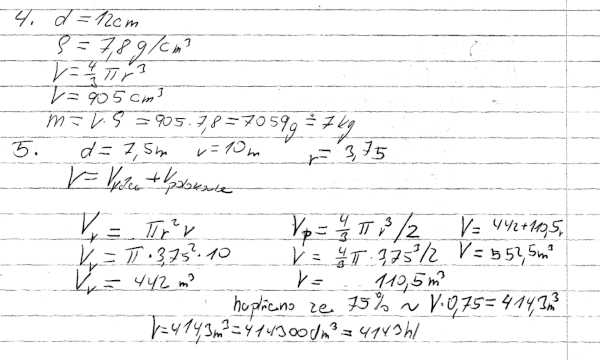 4. d = 12cm
ρ = 7,8g/cm³
V = 4/3 π r³
V = 905 cm³
m = V·ρ = 905·7,8 = 7059g ≐ 7kg
5. d = 7,5m v = 10m r = 3,75
V = Vválce + Vpolokoule
Vv = πr²v Vp = 4/3 π r³/2 V = 442+110,5
Vv = π·3,75²·10 V = 4/3 π·3,75³/2 V = 552,5m³
Vv = 442 m³ V = 110,5m³
naplněno ze 75% ~ V·0,75 = 414,3m³
V = 414,3m³ = 414300dm³ = 4143hl